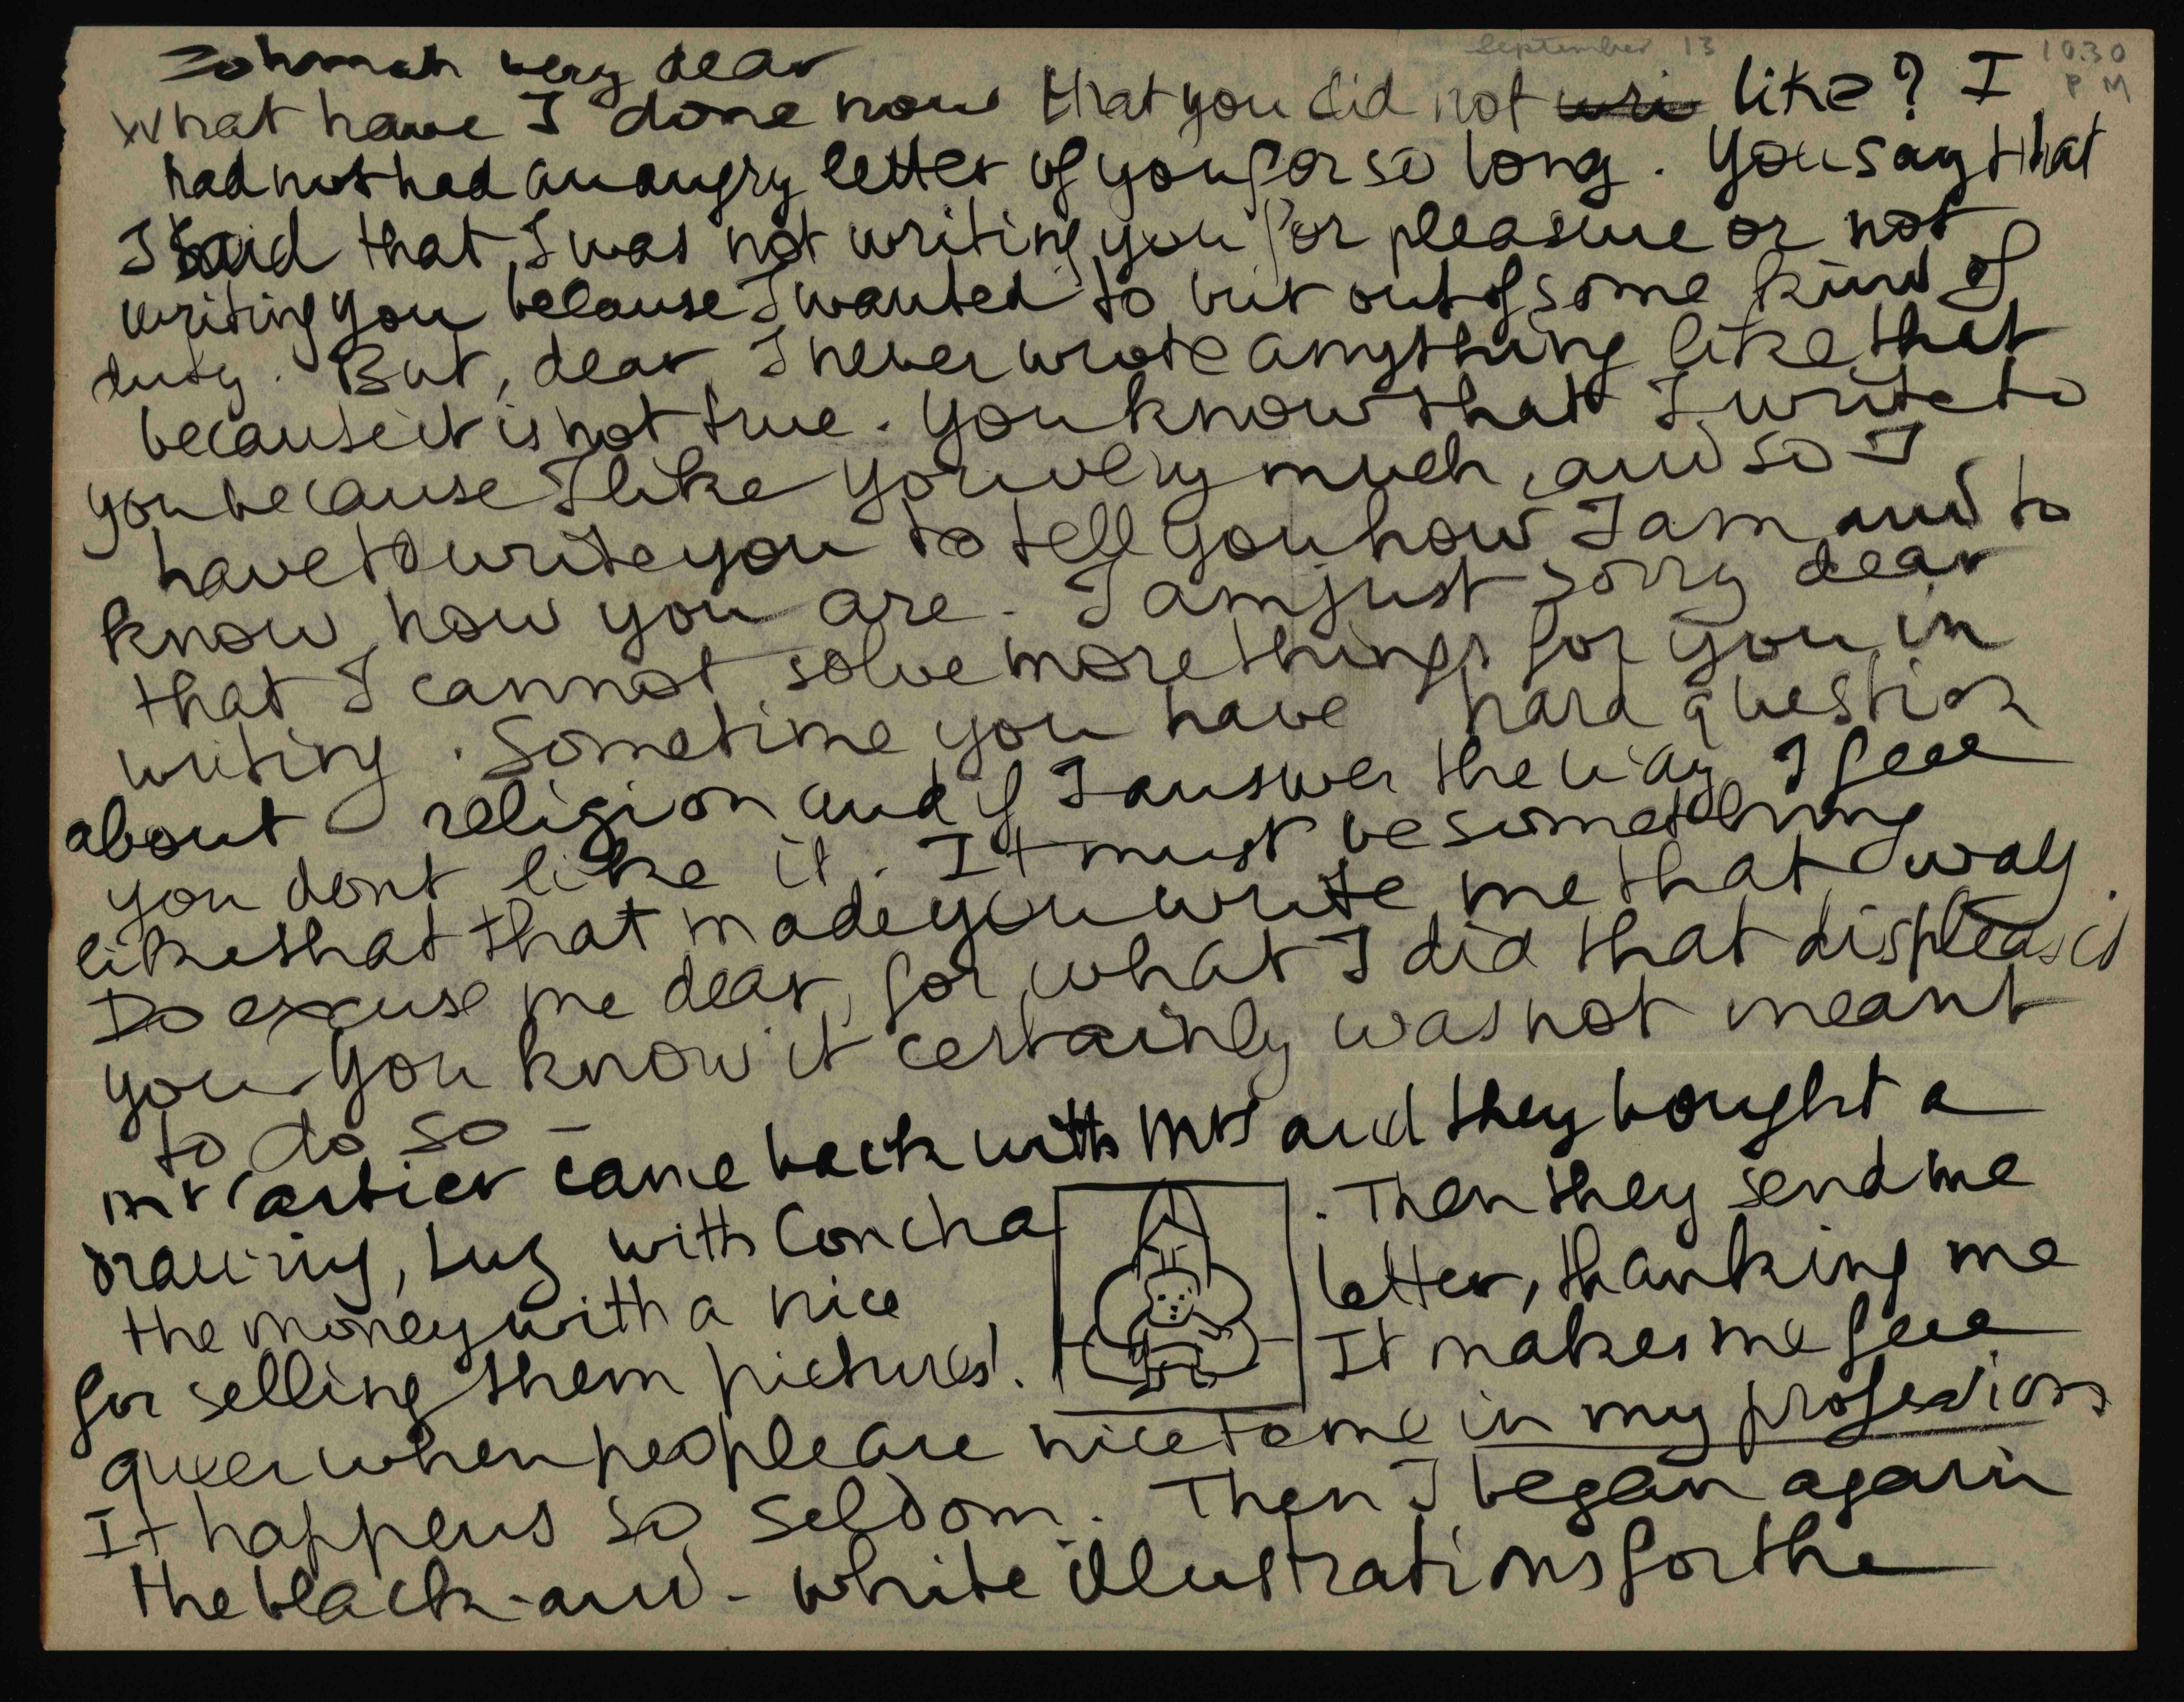 September 13 10.30
P M
Zohmah very dear
What have I done now that you did not wri like? I
had not had an angry letter of you for so long. You say that
I said that I was not writing you for pleasure or not
writing you because I wanted to but out of some kind of
duty. But, dear, I never wrote anything like that
because it is not true. You know that I write to
you because I like you very much, and so I
have to write you to tell you how I am and to
know how you are. I am just sorry dear
that I cannot solve more things for you in
writing. Sometime you have hard question
about religion and if I answer the way I feel
you dont like it. It must be something
like that that made you write me that way.
Do excuse me dear, for what I did that displeased
you. You know it certainly was not meant
to do so -
Mr Cartier came back with Mrs and they bought a
drawing, Luz with Concha . Then they send me
the money with a nice letter, thanking me
for selling them pictures! It makes me feel
queer when people are nice to me in my profession
It happens so seldom. Then I began again
the black-and-white illustrations for the